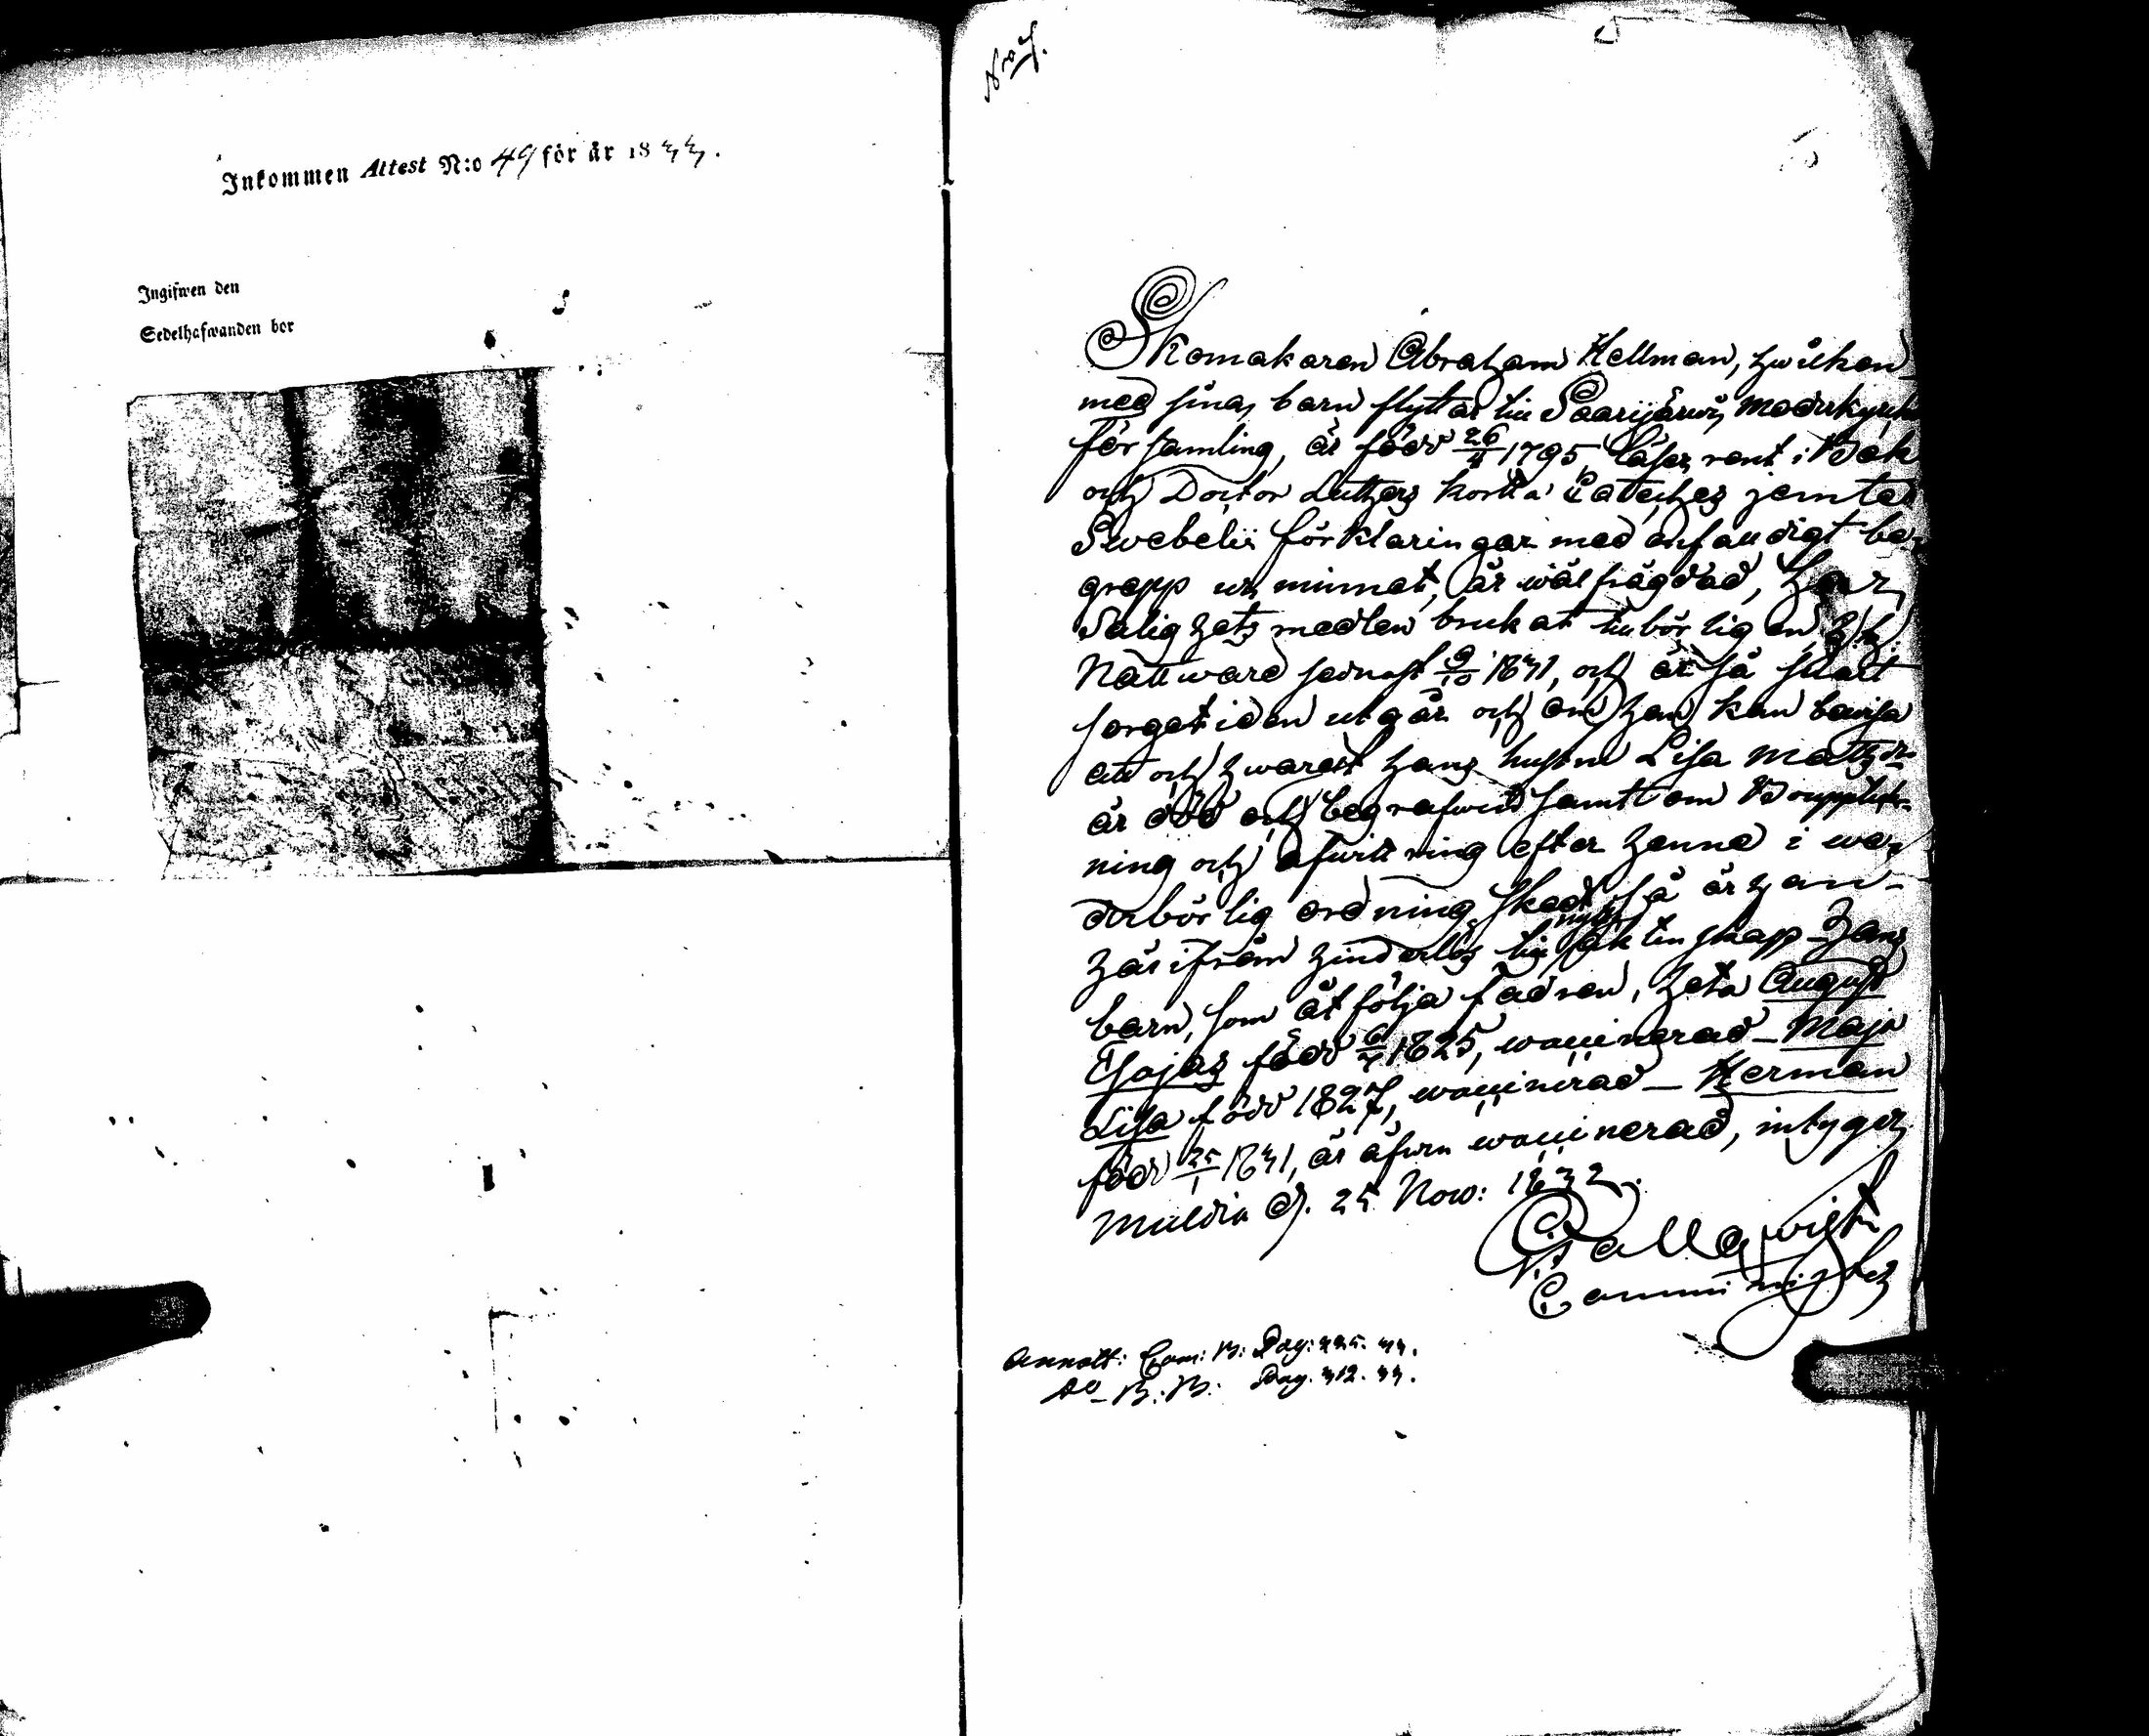 Inkommen Attest N:o 49 för år 1833.
Ingifwen den
Sedelhafwanden bor
Skomakaren Abraham Hellman, hwilken
med sina barn flyttar till Saarijärwis moderkyrko
församling, är född 26/4 1795, läser rent i Bok
och Doctor Luthers korta Cateches jemte
Swebelii förklaringar med enfaldigt be-
grepp ur minnet, är wälfrägdad, har
Salighets medlen brukat tillbörligen, H. H.
Nattward sednast 9/10 1831, och är så snart
sorgetiden utgår och om han kan bewisa
att och hwarest hans hustru Lisa Matsdr
är död och begrafwen samt om Bouppteck-
ning och afwittring efter henne i we-
derbörlig ordning skedt, så är han
härifrån hinderlös till nytt äktenskap. Hans
barn, som åtfölja fadren, heta August
Esajas född 6/7 1825, waccinerad – Maja
Lisa född 1827, waccinerad – Herman
född 25/1 1831, är äfwen waccinerad, intygar
Muldia d. 25 Now: 1832.
Gallqwist
Comminister
Annott: Com: B: Pag: 225. 33.
Do B: B: Pag. 312. 33.